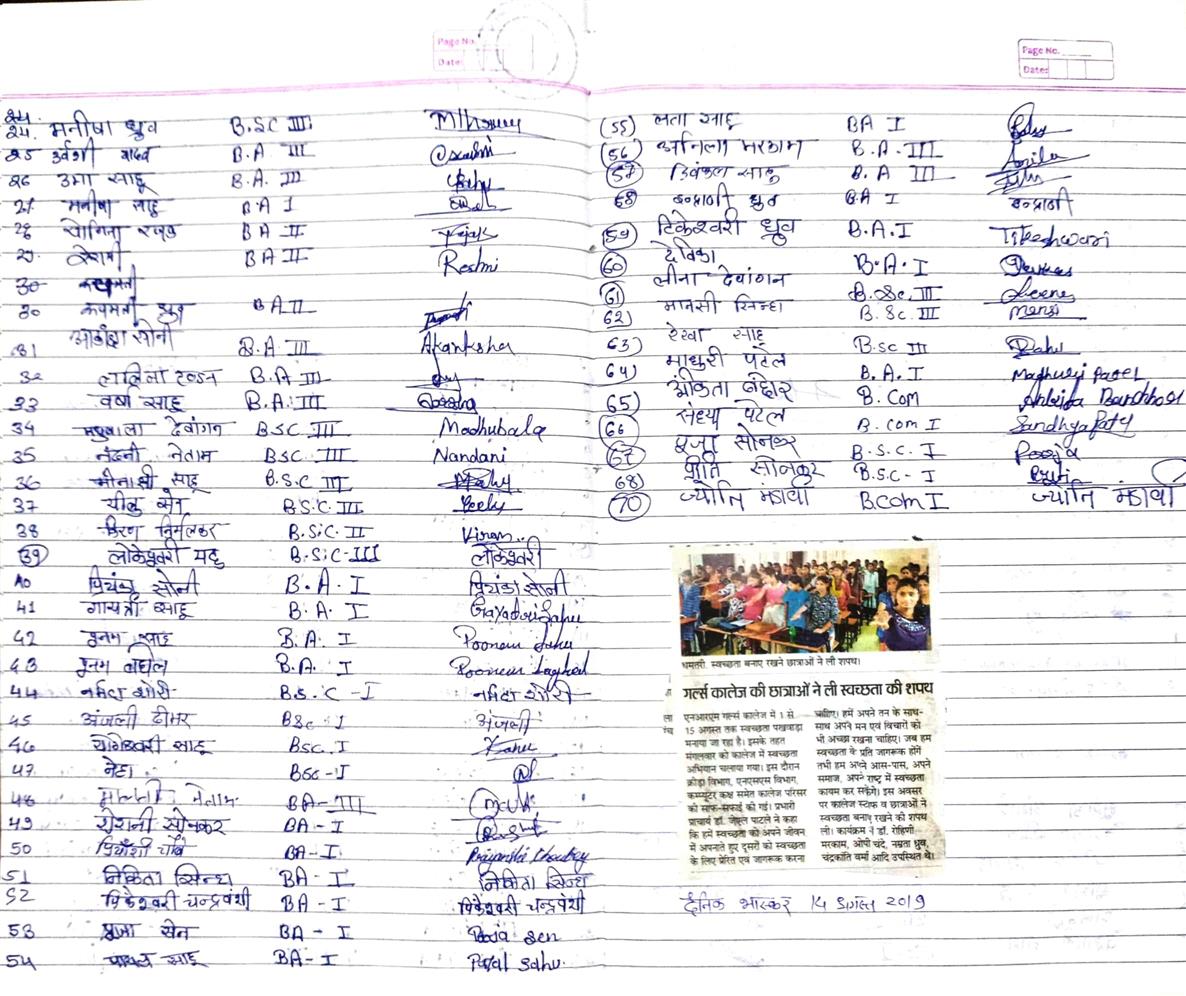 Page No.
Date:
24.
24. मनीषा ध्रुव B.SC III
25 उर्वशी यादव B.A III
26 उमा साहू B.A. III
27 मनीषा साहू B.A I
28 योगिता BA II
29. रेशमी BA II Reshmi
30
30 ध्रुव BA II
31 आकांक्षा सोनी B.A III Akanksha
32 ललिता टण्डन B.A III
33 वर्षा साहू B.A. III
34 मधुबाला देवांगन BSC III Madhubala
35 नंदनी नेताम BSC III Nandani
36 मीनाक्षी साहू B.S.C III
37 सेन B.S.C III
38 किरण निर्मलकर B.S.C II Kiran
39 लोकेश्वरी साहू B.S.C-III लोकेश्वरी
40 प्रियंका सोनी B.A.I प्रियंका सोनी
41 गायत्री साहू B.A. I Gayatri Sahu
42 पूनम साहू B.A. I Poonam Sahu
43 पूनम बघेल B.A. I Poonam Baghel
44 नर्मदा शोरी B.S.C-I नर्मदा शोरी
45 अंजली ढीमर BSc I अंजली
46 योगेश्वरी साहू BSC.I
47 नेहा BSC-I
48 मालती नेताम BA-III
49 रोशनी सोनकर BA-I
50 प्रियाँशी चौबे BA-I Priyanshi Choubey
51 निकिता सिन्हा BA-I निकिता सिन्हा
52 पिकेश्वरी चन्द्रवंशी BA-I पिकेश्वरी चन्द्रवंशी
53 पूजा सेन BA-I Pooja Sen
54 पायल साहू BA-I Payal Sahu
Page No.
Date:
(55) लता साहू BA I
(56) अनिला मरकाम B.A.III Anila
(57) डिंकल साहू B.A III
58 इन्द्राणी ध्रुव BA I इन्द्राणी
(59) टिकेश्वरी ध्रुव B.A.I Tikeshwari
(60) देविका B.A.I
(61) लीना देवांगन B.Sc.III Leena
62) मानसी सिन्हा B.Sc.III Mansi
63) रेखा साहू B.SC III
64) माधुरी पटेल B.A.I Madhuri Patel
65) अंकिता B.Com Ankita
(66) संध्या पटेल B.Com I Sandhya Patel
(67) पूजा सोनकर B.S.C.I Pooja
68) प्रीति सोनकर B.S.C-I
(70) ज्योति मंडावी B.Com I ज्योति मंडावी
धमतरी. स्वच्छता बनाए रखने छात्राओं ने ली शपथ।
गर्ल्स कालेज की छात्राओं ने ली स्वच्छता की शपथ
एनआरएम गर्ल्स कालेज में 1 से
15 अगस्त तक स्वच्छता पखवाड़ा
मनाया जा रहा है। इसके तहत
मंगलवार को कालेज में स्वच्छता
अभियान चलाया गया। इस दौरान
क्रीड़ा विभाग, एनएसएस विभाग,
कम्प्यूटर कक्ष समेत कालेज परिसर
की साफ-सफाई की गई। प्रभारी
प्राचार्य डॉ. जेएल पाटले ने कहा
कि हमें स्वच्छता को अपने जीवन
में अपनाते हुए दूसरों को स्वच्छता
के लिए प्रेरित एवं जागरूक करना
चाहिए। हमें अपने तन के साथ-
साथ अपने मन एवं विचारों को
भी अच्छा रखना चाहिए। जब हम
स्वच्छता के प्रति जागरूक होंगे
तभी हम अपने आस-पास, अपने
समाज, अपने राष्ट्र में स्वच्छता
कायम कर सकेंगे। इस अवसर
पर कालेज स्टाफ व छात्राओं ने
स्वच्छता बनाए रखने की शपथ
ली। कार्यक्रम में डॉ. रोहिणी
मरकाम, ओपी चंदे, नम्रता ध्रुव,
चंद्रकांति वर्मा आदि उपस्थित थे।
दैनिक भास्कर 14 अगस्त 2019